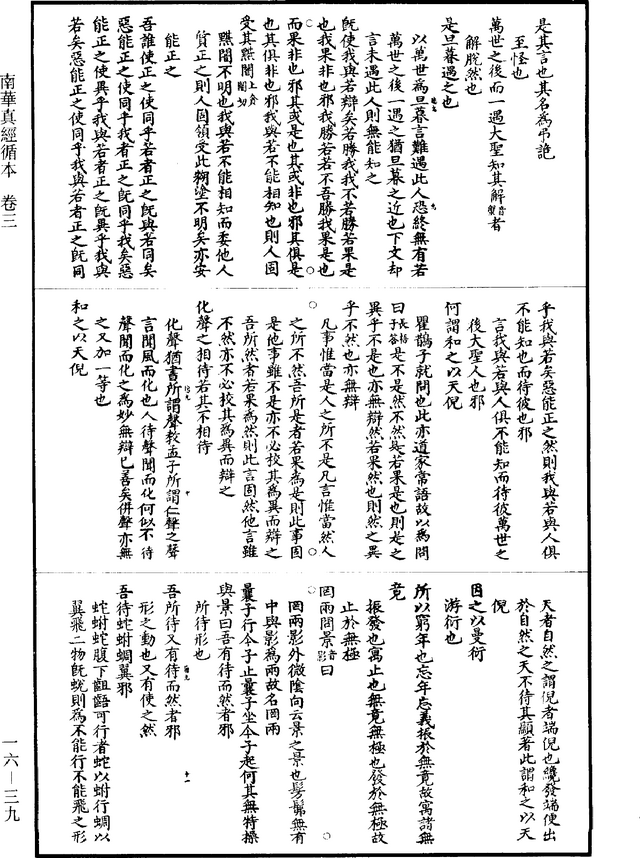 是其言也其名為弔詭
至怪也
萬世之後而一遇大聖知其解音蟹者
解脫然也
是旦暮遇之也
以萬世為旦暮言難遇此人恐終無有若
萬世之後一遇之猶旦暮之近也下文却
言未遇此人則無能知之
既使我與若辯矣若勝我我不若勝若果是
也我果非也邪我勝若若不吾勝我果是也
而果非也邪其或是也其或非也邪其俱是
也其俱非也邪我與若不能相知也則人固
受其黮闇
黮闇不明也我與若不能相知而委他人
質正之則人固領受此糊塗不明矣亦安
能正之
吾誰使正之使同乎若者正之既與若同矣
惡能正之使同乎我者正之既同乎我矣惡
能正之使異乎我與若者正之既異乎我與
若矣惡能正之使同乎我與若者正之既同
乎我與若矣惡能正之然則我與若與人俱
不能知也而待彼也邪
言我與若與人俱不能知而待彼萬世之
後大聖人也邪
何謂和之以天倪
瞿鵲子就問也此亦道家常語故以為問
曰長梧子答是不是然不然是若果是也則是之
異乎不是也亦無辯然若果然也則然之異
乎不然也亦無辯
凡事惟當是人之所不是凡言惟當然人
之所不然吾所是者若果為是則此事固
是他事雖不是亦不必校其為異而辯之
吾所然者若果為然則此言固然他言雖
不然亦不必校其為異而辯之
化聲之相待若其不相待
化聲猶書所謂聲教孟子所謂仁聲之聲
言聞風而化也人待聲聞而化何似不待
聲聞而化之為妙無辯已善矣併聲亦無
之又加一等也
和之以天倪
天者自然之謂倪者端倪也纔發端使出
於自然之天不待其顯著此謂和之以天
倪
因之以曼衍
游衍也
所以窮年也忘年忘義振於無竟故寓諸無
竟
振發也寓止也無竟無極也發於無極故
止於無極
罔兩問景音影曰
罔兩影外微陰向云景之景也髣髴無有
中與影為兩故名罔兩
曩子行今子止曩子坐今子起何其無特操
與景曰吾有待而然者邪
所待形也
吾所待又有待而然者邪
形之動也又有使之然
吾待蛇蚹蜩翼邪
蛇蚹蛇腹下齟齬可行者蛇以蚹行蜩以
翼飛二物既蛻則為不能行不能飛之形
南華真經循本　卷三
一六—三九